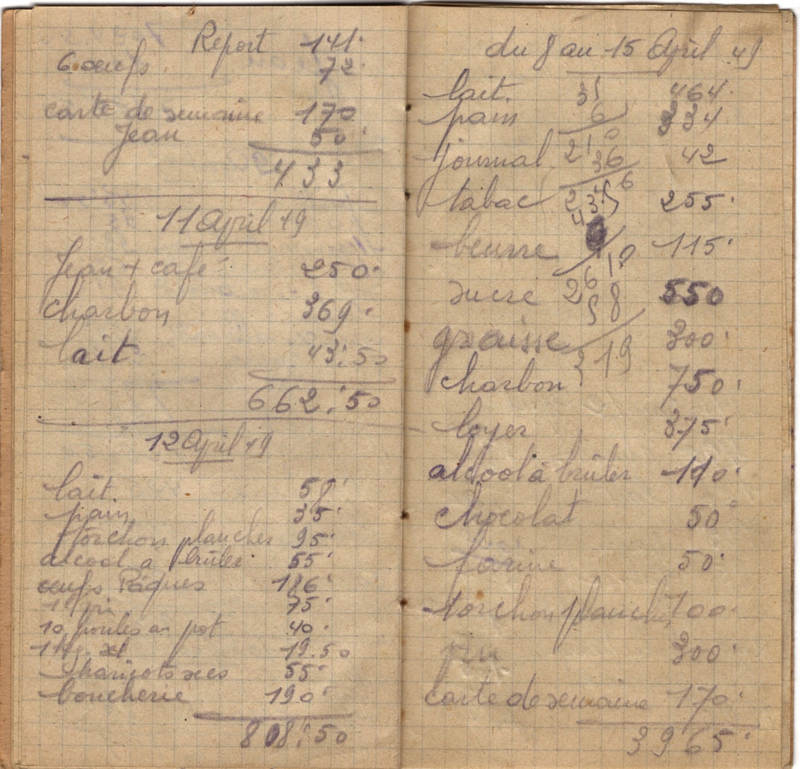 Report 141.
6 oeufs. 72.
carte de semaine 170
Jean 50.
433
11 April 49
Jean + café 250.
charbon 369.
lait 43.50
662.50
12 April 49
lait 58.
pain 35.
torchon planches 95.
alcool à brûler 55.
oeufs Pâques 186.
75.
10 poules au pot 40.
1 kg. sel 19.50
haricots secs 55.
boucherie 190.
808.50
du 8 au 15 April 49
lait. 464.
pain 334
journal 42
tabac 255.
beurre 115.
sucre 550
graisse 300.
charbon 750.
loyer 375.
alcool à brûler 110.
chocolat 50
farine 50.
torchon planches 100.
300.
carte de semaine 170.
3965.